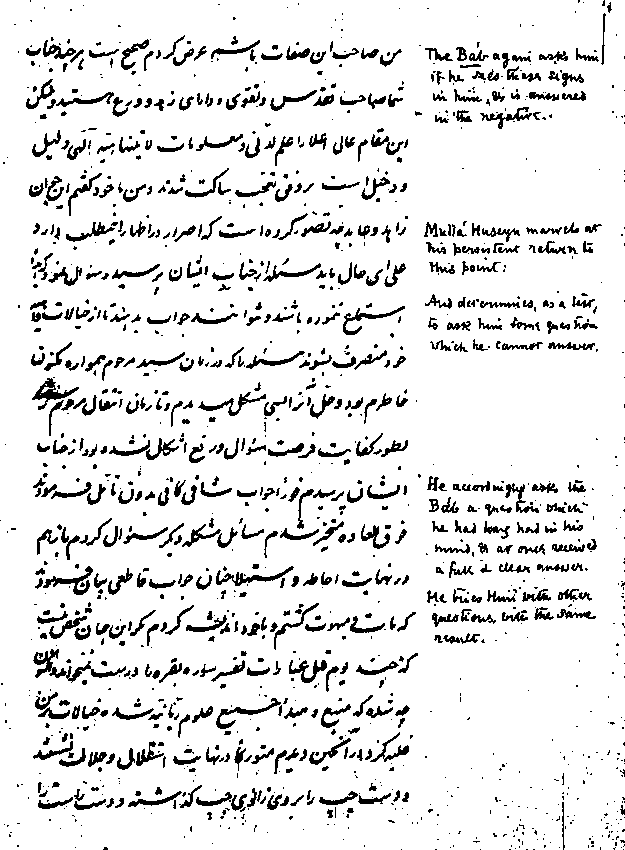 من صاحب این صفات باشم عرض کردم صحیح است هر چند جناب
شما صاحب تقدس و تقوی و دارای زهد و ورع هستید ولیکن
این مقام عالی اعلا را علم لدنی و معلومات لا یتناهیه الهی دلیل
و دخیل است بروفق تعجب ساکت شدند و من با خود گفتم این جوان
زاهد و عابد چه تصور کرده است که اصرار در اظهار این مطلب دارد
علی ای حال باید مسئله از جناب ایشان پرسید و سؤال نمود که
استماع ننموده باشند و نتوانند جواب بدهند تا از خیالات
خود منصرف بشوند مسئله را که در زمان سید مرحوم همواره مکنون
خاطرم بود و حل آنرا بسی مشکل میدیدم و تا زمان انتقال مرحوم
بطور کفایت فرصت سؤال و رفع اشکال نشده بود از جناب
ایشان پرسیدم فوراً جواب شافی کافی بدون تأمل فرمودند
فوق العاده متحیر شدم مسائل مشکله دیگر سؤال کردم باز هم
در نهایت احاطه و استیلا چنان جواب قاطعی بیان فرمودند
که مات و مبهوت گشتم و با خود اندیشه کردم مگر این جوان شخص نیست
که چند یوم قبل عبارات تفسیر سوره بقره را درست نمیخواند اکنون
چه شده که منبع و مبدأ جمیع علوم ربانیه شده خیالات بر من
غلبه کرد در آنحین دیدم در نهایت استقلال و جلالت نشسته
و دست چپ را بروی زانوی چپ گذاشته و دست راست را
The Báb again asks him
if he sees these signs
in him, & is answered
in the negative.
Mullá Ḥuseyn marvels at
his persistent return to
this point:
And determines, as a test,
to ask him some question
which he cannot answer.
He accordingly asks the
Báb a question which
he had long had in his
mind, & at once received
a full & clear answer.
He tries him with other
questions, with the same
result.